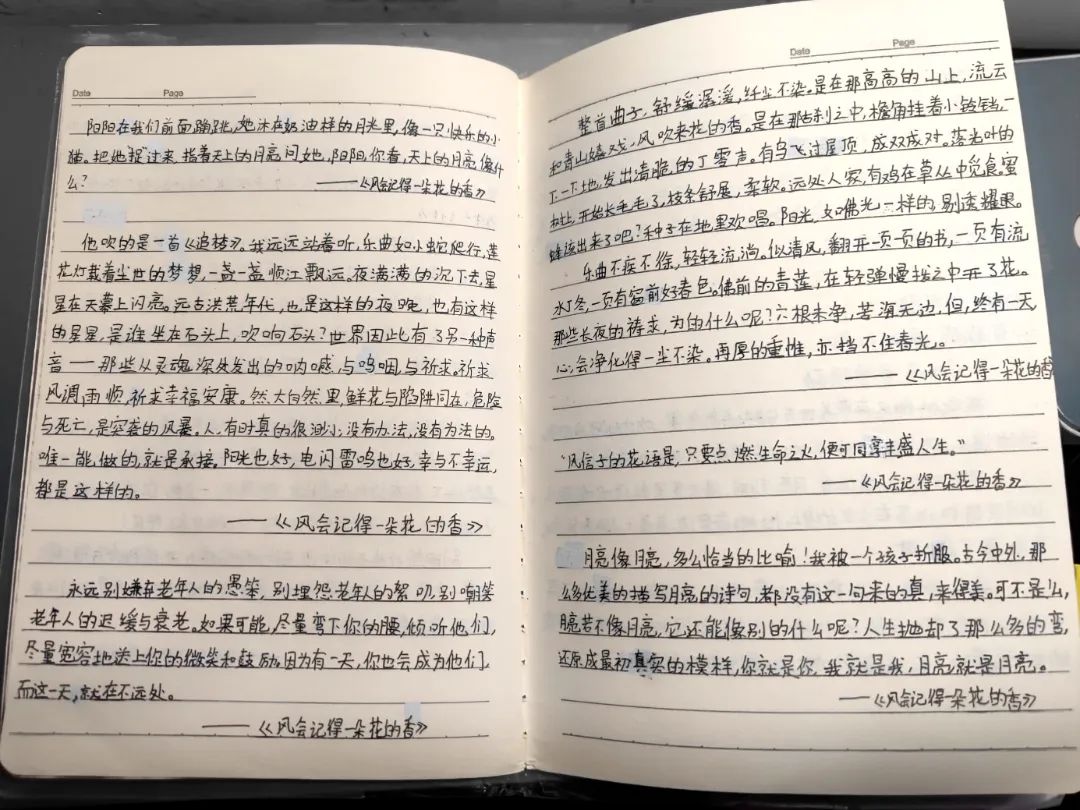 Date Page
阳阳在我们前面蹦跳,她沐在奶油样的月光里,像一只快乐的小
猫。把她"捉"过来,指着天上的月亮问她,阳阳,你看,天上的月亮像什
么?
——《风会记得一朵花的香》
他吹的是一首《追梦》。我远远站着听,乐曲如小蛇爬行,莲
花灯载着尘世的梦想,一盏一盏顺江飘远。夜满满的沉下去,星
星在天幕上闪亮。远古洪荒年代,也是这样的夜晚,也有这样
的星星,是谁坐在石头上,吹响石头?世界因此有了另一种声
音——那些从灵魂深处发出的呐喊,与呜咽,与祈求。祈求
风调雨顺,祈求幸福安康。然,大自然里,鲜花与陷阱同在,危险
与死亡,是突袭的风暴。人,有时真的很渺小,没有办法,没有办法的。
唯一能做的,就是承接。阳光也好,电闪雷鸣也好,幸与不幸运,
都是这样的。
——《风会记得一朵花的香》
永远别嫌弃老年人的愚笨,别埋怨老年人的絮叨,别嘲笑
老年人的迟缓与衰老。如果可能,尽量弯下你的腰,倾听他们,
尽量宽容地送上你的微笑和鼓励。因为有一天,你也会成为他们,
而这一天,就在不远处。
——《风会记得一朵花的香》
Date Page
整首曲子,舒缓潺湲,纤尘不染。是在那高高的山上,流云
和青山嬉戏,风吹来花的香。是在那古刹之中,檐角挂着小铃铛,一
下一下地,发出清脆的丁零声。有鸟飞过屋顶,成双成对。落光叶的
枝上,开始长毛毛了,枝条舒展,柔软。远处人家,有鸡在草丛中觅食。蜜
蜂该出来了吧?种子在地里欢唱。阳光,如佛光一样的,剔透耀眼。
乐曲不疾不徐,轻轻流淌。似清风,翻开一页一页的书,一页有流
水丁冬,一页有窗前好春色。佛前的青莲,在轻弹慢拢之中开了花。
那些长夜的祷求,为的什么呢?六根未净,苦海无边,但,终有一天
心会净化得一尘不染。再厚的重帷,亦挡不住春光。
——《风会记得一朵花的香
"风信子的花语是,只要点燃生命之火,便可同享丰盛人生。"
——《风会记得一朵花的香》
月亮像月亮,多么恰当的比喻!我被一个孩子折服。古今中外,那
么多优美的描写月亮的诗句,都没有这一句来的真,来得美。可不是么,
月亮若不像月亮,它还能像别的什么呢?人生抛却了那么多的弯,
还原成最初真实的模样,你就是你,我就是我,月亮就是月亮。
——《风会记得一朵花的香》